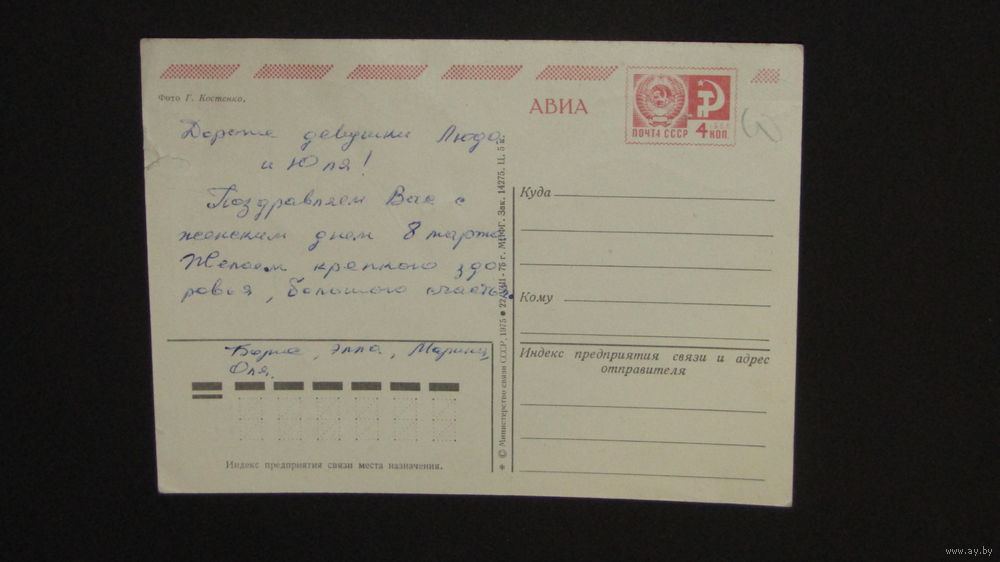 АВИА
ПОЧТА СССР 4 КОП.
Фото Г. Костенко.
Дорогие девушки Люда
и Юля!
Поздравляем Вас с
женским днем 8 марта.
Желаем крепкого здо
ровья, большого счастья.
Борис, Элла, Марина,
Оля.
Индекс предприятия связи места назначения.
© Министерство связи СССР, 1975 22/VIII-75 г. МПФГ. Зак. 14275. Ц. 5 к.
Куда
Кому
Индекс предприятия связи и адрес
отправителя
www.ay.by